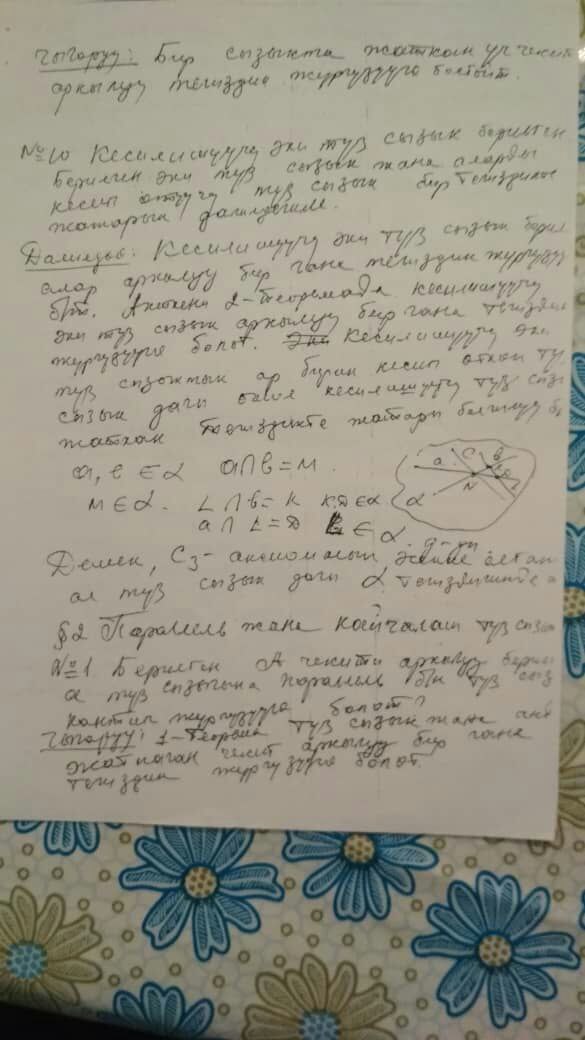 Чыгаруу: Бир сызыкта жаткан үч чекит
аркылуу тегиздик жүргүзүүгө болбойт.
№10 Кесилишүүчү эки түз сызык берилген
Берилген эки түз сызык жана аларды
кесип өтүүчү түз сызык бир тегиздикте
жатарын далилдегиле.
Далилдөө: Кесилишүүчү эки түз сызык берил
алар аркылуу бир гана тегиздик жүргүзүү
б/т. Анткени 2-теоремада кесилишүүчү
эки түз сызык аркылуу бир гана тегиздик
жүргүзүүгө болот. Кесилишүүчү эки
түз сызыктын ар бирин кесип өткөн тү
сызык дагы кесилишүүчү түз сыз
жаткан тегиздикте жатары белгилүү б
a, b ∈ α a∩b = M.
M ∈ α. L∩b = K K,D ∈ α
a∩L = D L ∈ α.
a c b N α
Демек, C₃ - аксиоманын эске алган
ал түз сызык дагы α тегиздигинде
§2 Паралель жана кайчалаш түз сызы
№1 Берилген A чекити аркылуу бери
a түз сызыгына паралель б/н түз сыз
кантип жүргүзүүгө болот?
Чыгаруу: 1-Теорема түз сызык жана анд
жатпаган чекит аркылуу бир гана
тегиздик жүргүзүүгө болот.